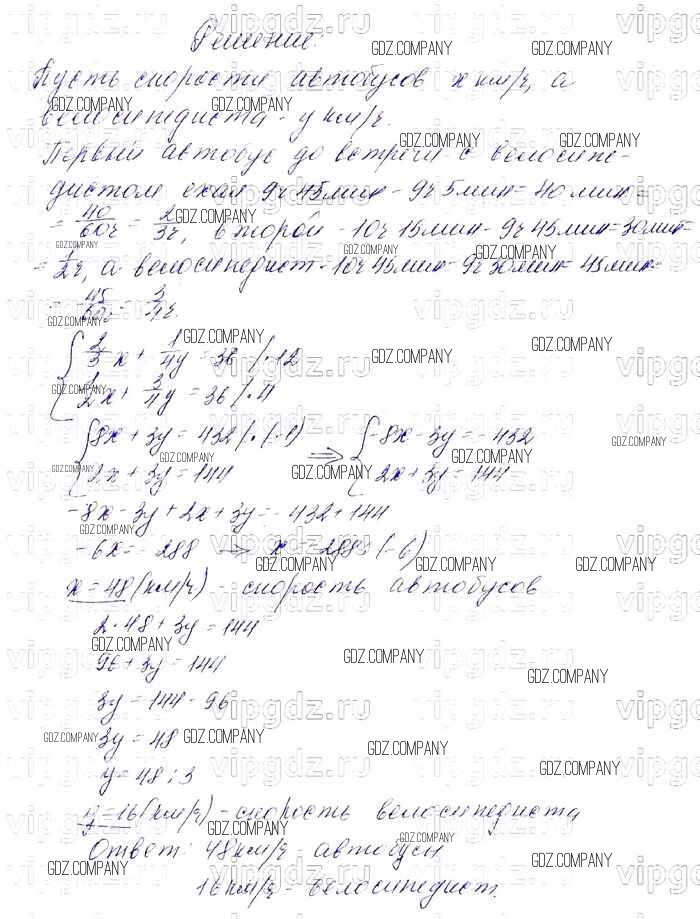 Решение:
Пусть скорости автобусов x км/ч, а
велосипедиста - y км/ч.
Первый автобус до встречи с велосипе-
дистом ехал 9ч 45мин - 9ч 5мин = 40 мин =
= 40/60ч = 2/3ч, второй - 10ч 15мин - 9ч 45мин = 30мин =
= 1/2ч, а велосипедист - 10ч 45мин - 9ч 30мин = 45мин =
= 45/60ч = 3/4ч.
{ 2/3x + 1/4y = 36 /·12
{ 1/2x + 3/4y = 36 /·4
{ 8x + 3y = 432 /·(-1) => { -8x - 3y = -432
{ 2x + 3y = 144 { 2x + 3y = 144
-8x - 3y + 2x + 3y = -432 + 144
-6x = -288 → x = -288 : (-6)
x = 48 (км/ч) - скорость автобусов
2·48 + 3y = 144
96 + 3y = 144
3y = 144 - 96
3y = 48
y = 48 : 3
y = 16 (км/ч) - скорость велосипедиста
Ответ: 48км/ч - автобусы
16км/ч - велосипедист.
GDZ.COMPANY
vipgdz.ru